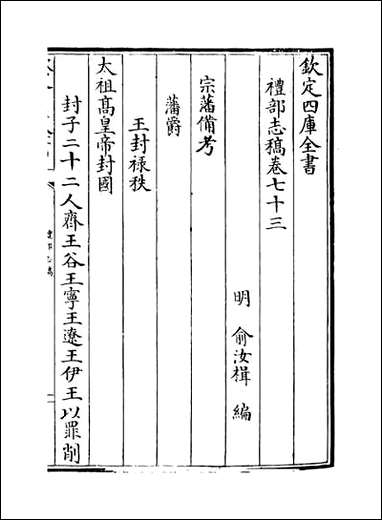 欽定四庫全書
禮部志稿卷七十三
明 俞汝楫 編
宗藩備考
藩爵
王封祿秩
太祖高皇帝封國
封子二十二人齊王谷王寧王遼王伊王以罪削